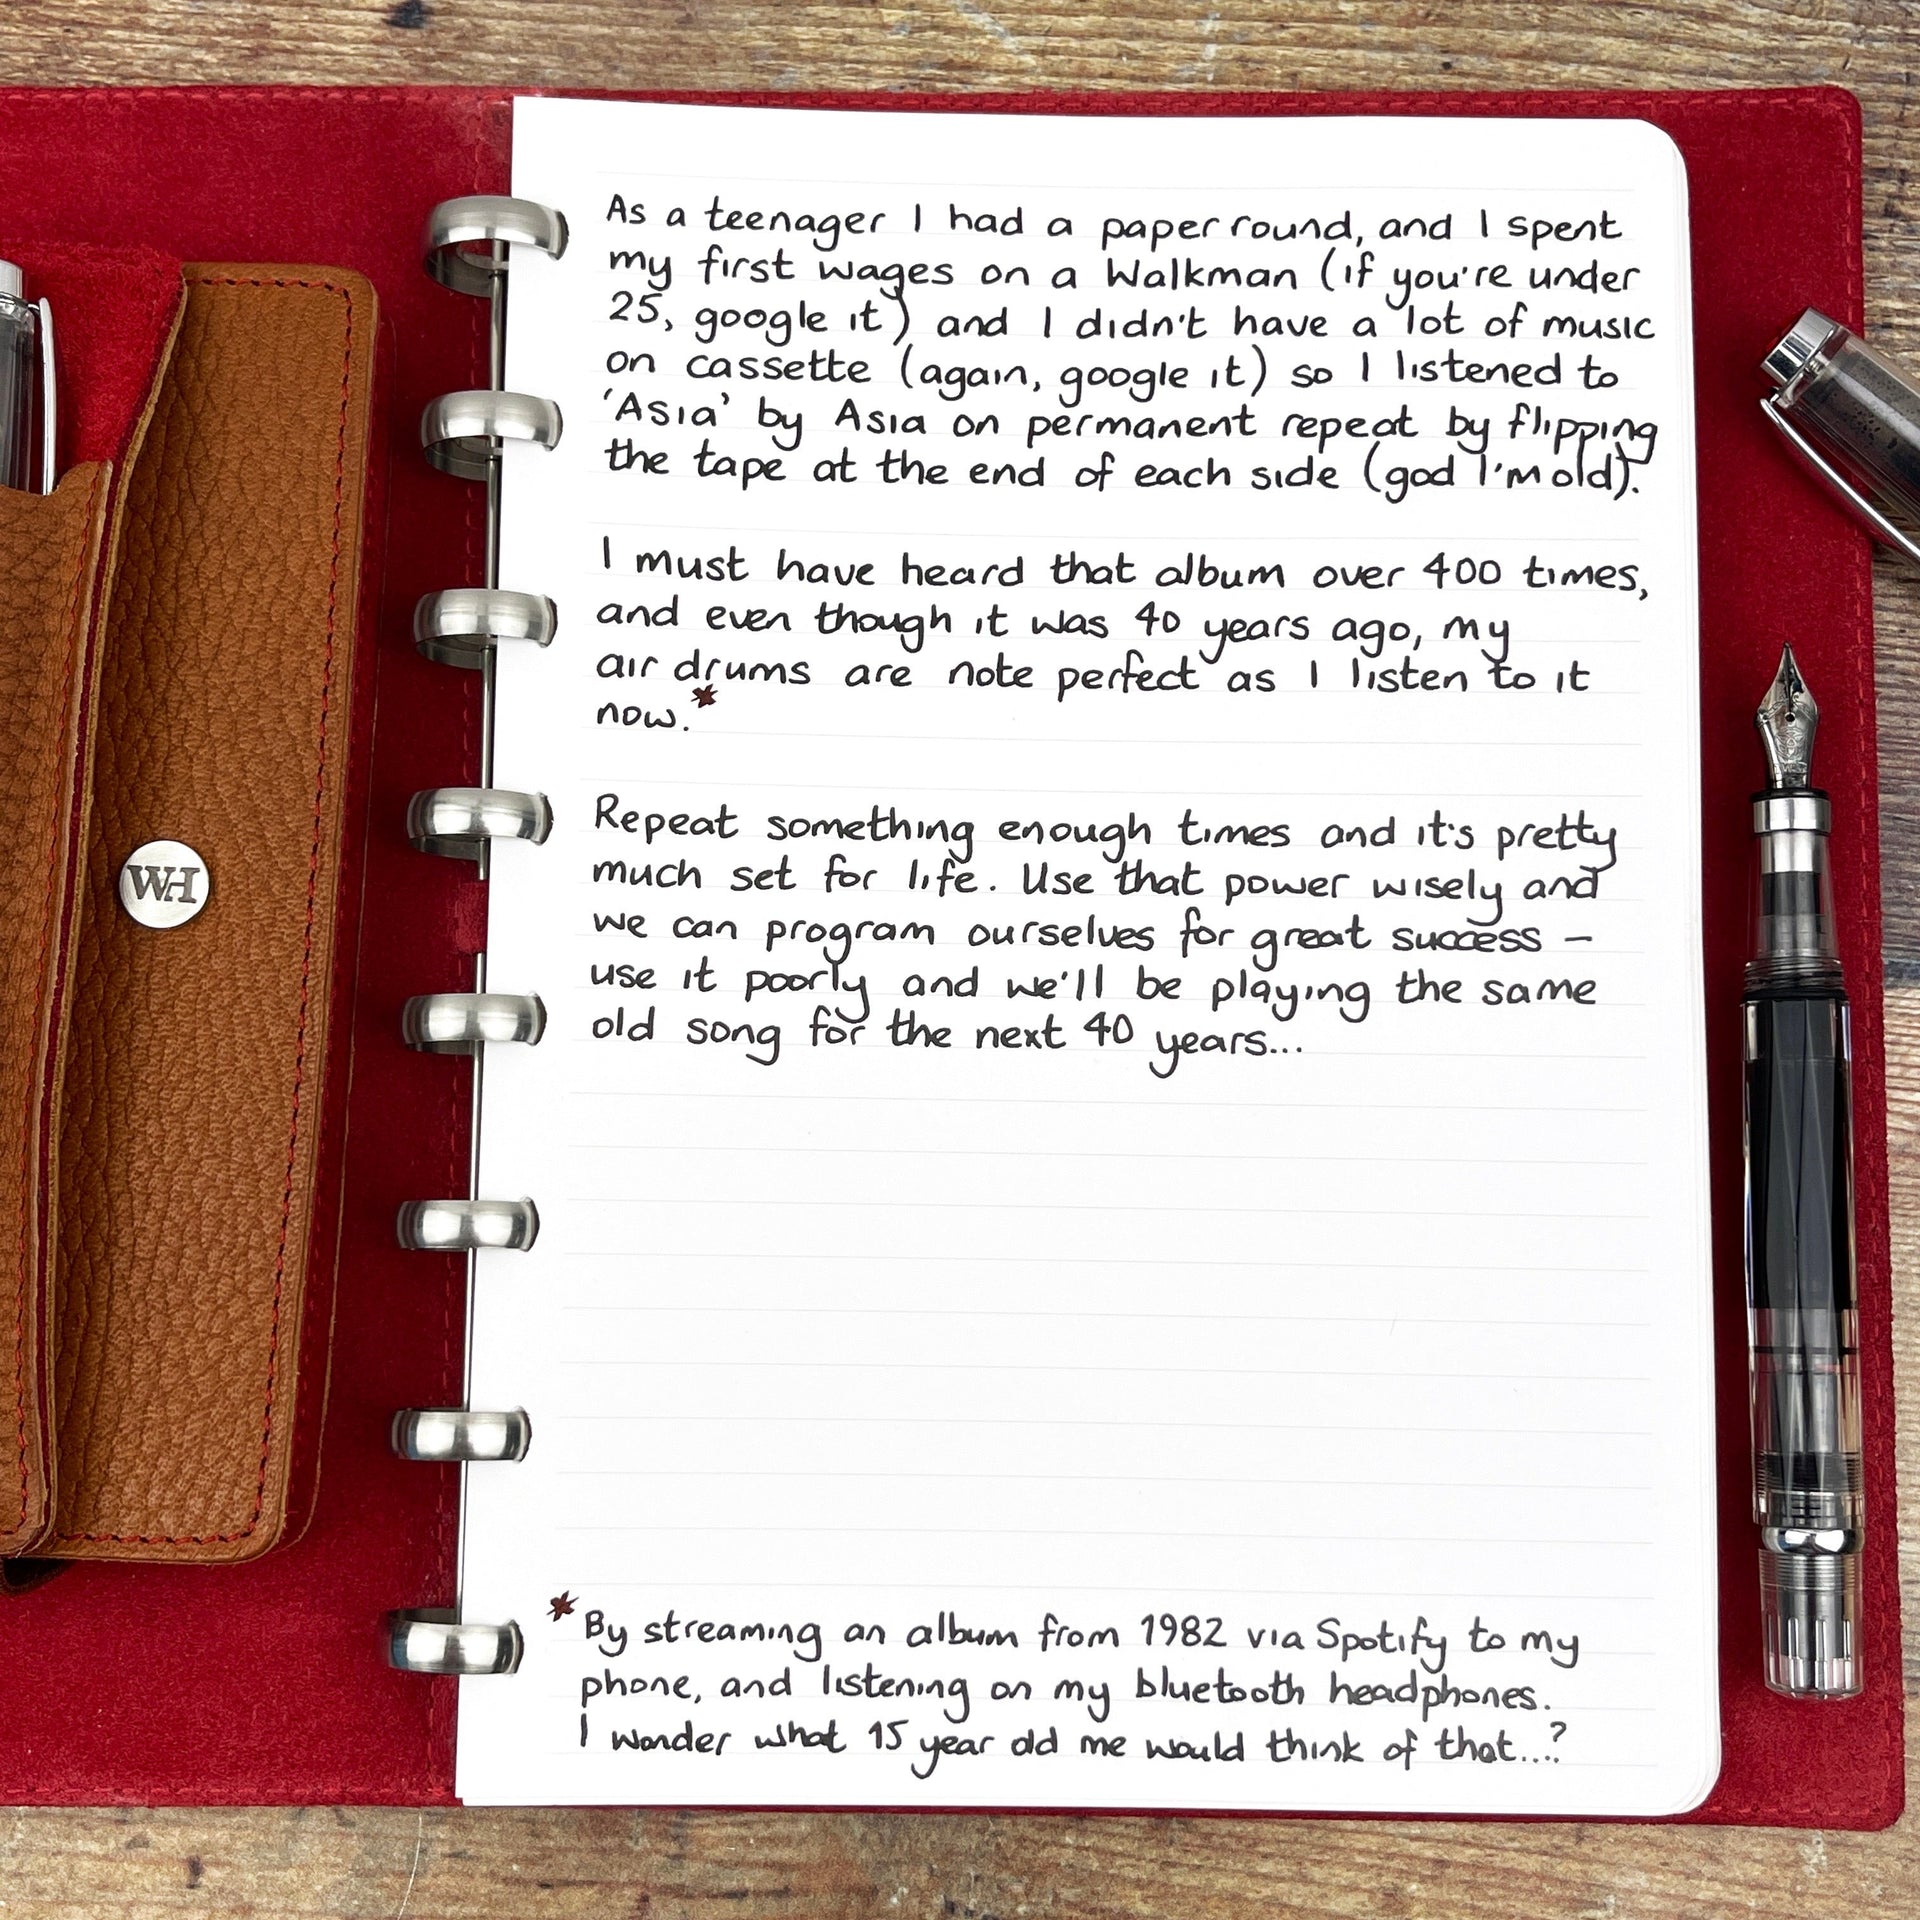 As a teenager I had a paper round, and I spent
my first wages on a Walkman (if you're under
25, google it) and I didn't have a lot of music
on cassette (again, google it) so I listened to
'Asia' by Asia on permanent repeat by flipping
the tape at the end of each side (god I'm old).
I must have heard that album over 400 times,
and even though it was 40 years ago, my
air drums are note perfect as I listen to it
now.*
Repeat something enough times and it's pretty
much set for life. Use that power wisely and
we can program ourselves for great success –
use it poorly and we'll be playing the same
old song for the next 40 years...
*By streaming an album from 1982 via Spotify to my
phone, and listening on my bluetooth headphones.
I wonder what 15 year old me would think of that...?
WH